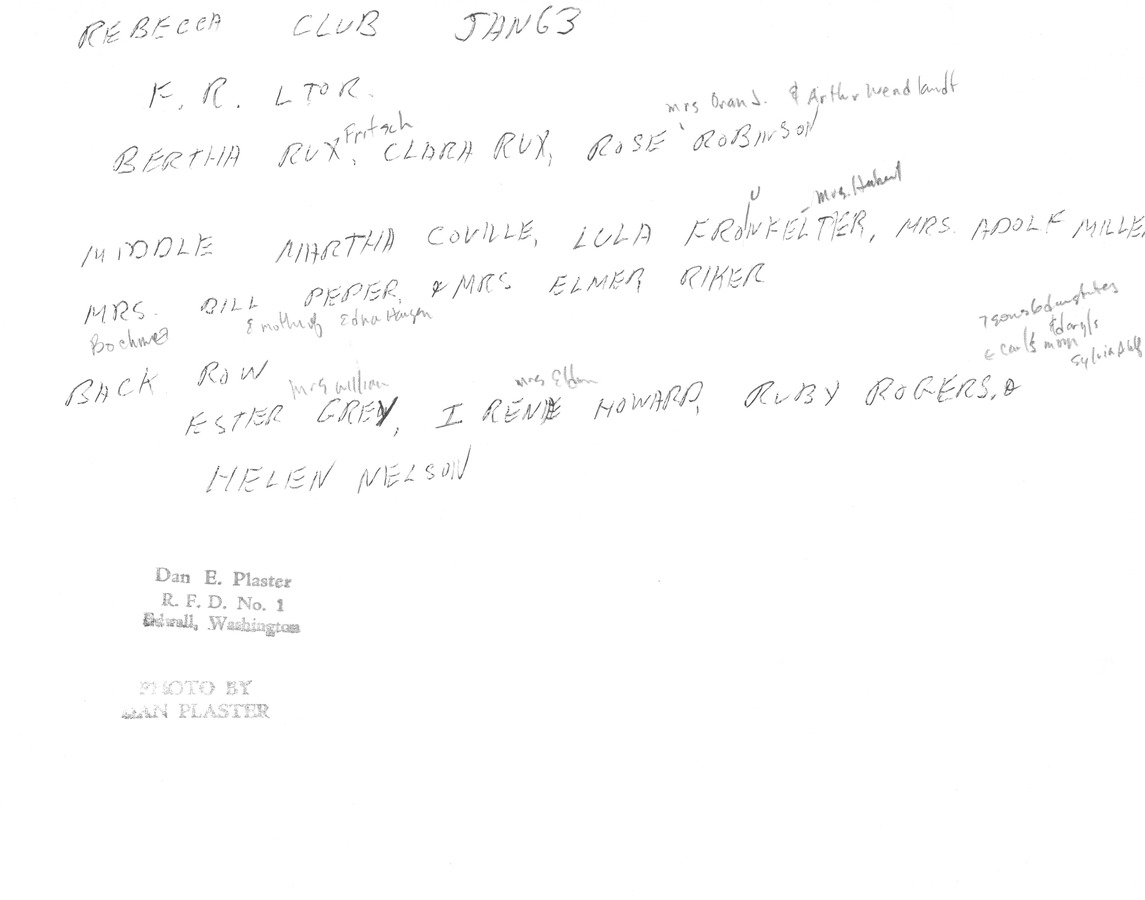 REBECCA CLUB JAN 63
F. R. L TO R.
Mrs Oran J. & Arthur Wendlandt
Fritsch
BERTHA RUX, CLARA RUX, ROSE ROBINSON
U - Mrs. Hubert
MIDDLE MARTHA COVILLE, LULA FRONKELTER, MRS. ADOLF MILLE
MRS. BILL PEPER, & MRS ELMER RIKER
& mother of Edna
7 sons 6 daughters
& Daryls
Carl's mom
Sylvia
BACK ROW
Mrs William Mrs Eldon
ESTER GREY, IRENE HOWARD, RUBY ROGERS, &
HELEN NELSON
Dan E. Plaster
R. F. D. No. 1
Edwall, Washington
PHOTO BY
DAN PLASTER